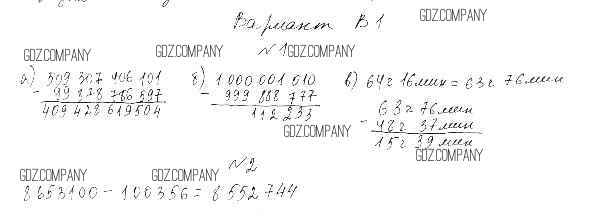 Вариант В1
GDZ.COMPANY
GDZ.COMPANY GDZ.COMPANY
№1 GDZ.COMPANY
а) 509 307 406 101
- 99 878 786 597
409 428 619 504
б) 1 000 001 010
- 999 888 777
112 233
GDZ.COMPANY
в) 64г 16мин = 63г 76мин
63г 76мин
- 48г 37мин
15г 39мин
GDZ.COMPANY
№2
GDZ.COMPANY GDZ.COMPANY
8653100 - 100356 = 8552744